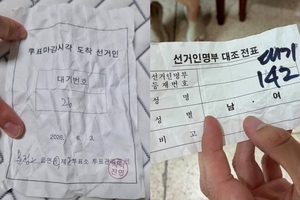 투표마감시각 도착 선거인
대기번호
2026. 6. 3.
투표소 투표관리관
선거인명부 대조 전표
대기
142
선거인명부
등재번호
성 명
성 별
남 · 여
비 고